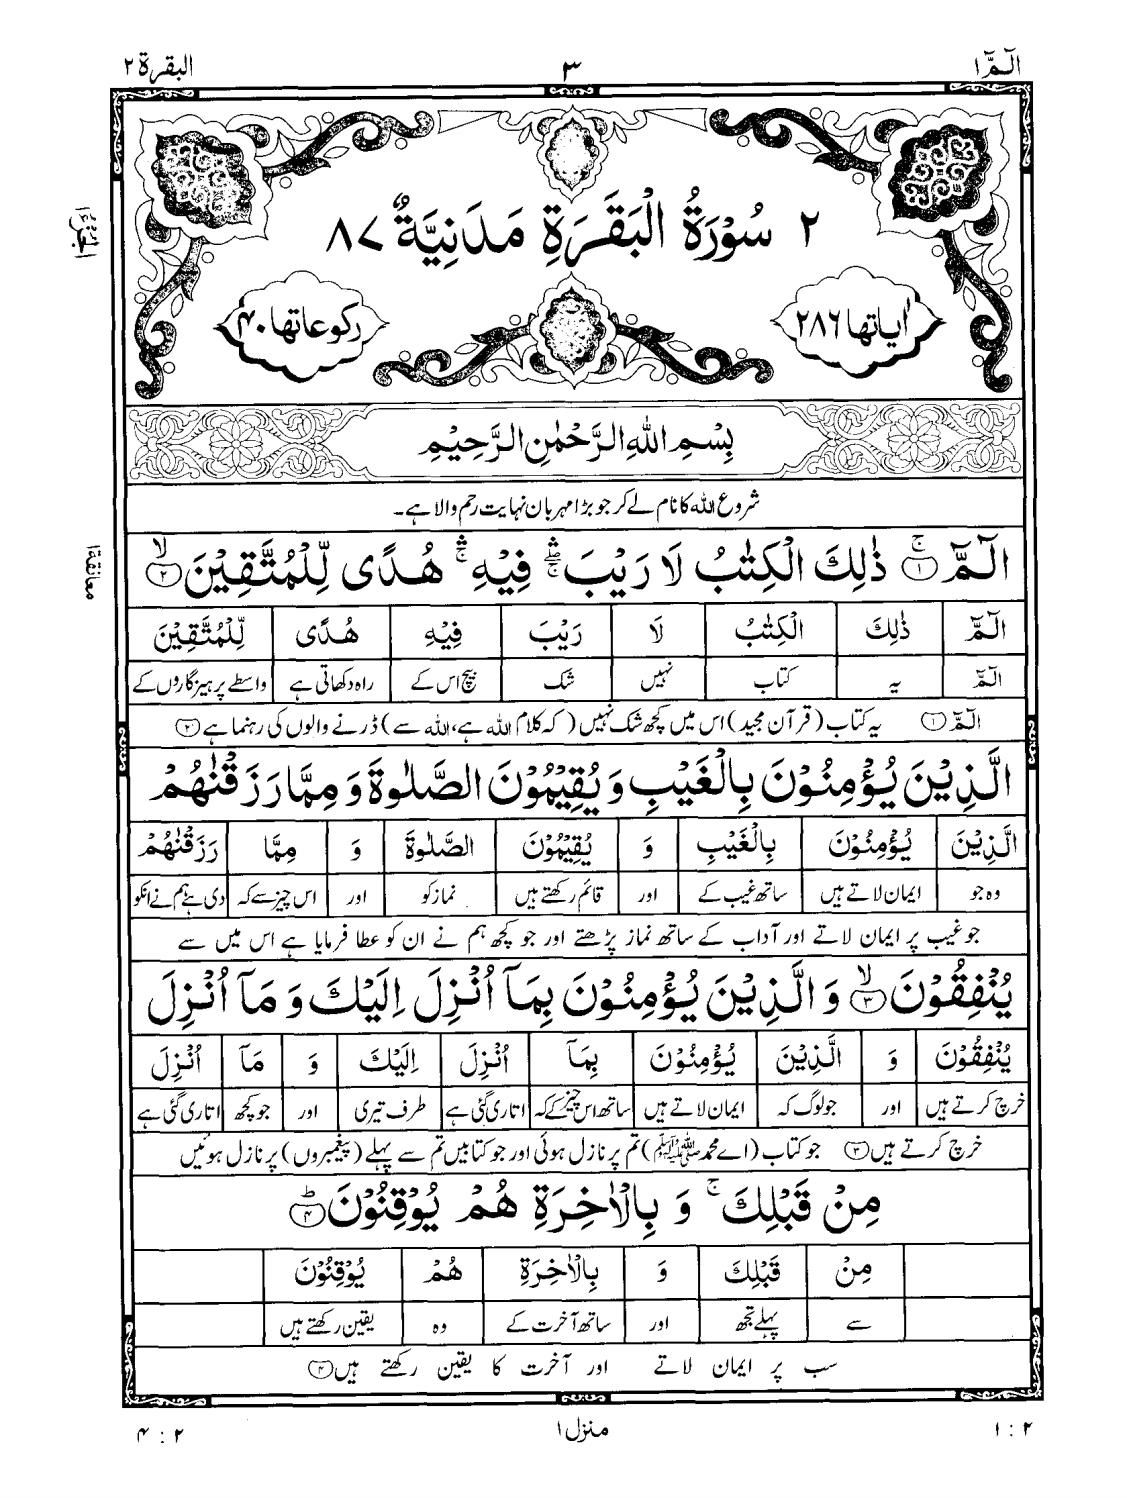 الٓمّٓ ۱ ۳ البقرة ۲
۲ سُوْرَةُ الْبَقَرَةِ مَدَنِيَّةٌ ۸۷
اٰیاتها ۲۸۶ رکوعاتها ۴۰
الجزء ۱
بِسْمِ اللّٰهِ الرَّحْمٰنِ الرَّحِيْمِ
شروع اللہ کا نام لے کر جو بڑا مہربان نہایت رحم والا ہے۔
الٓمّٓ ۚ﴿۱﴾ ذٰلِكَ الْكِتٰبُ لَا رَيْبَ ۛۖۚ فِيْهِ ۛۚ هُدًى لِّلْمُتَّقِيْنَ ۙ﴿۲﴾
معانقة ۱
الٓمّٓ ذٰلِكَ الْكِتٰبُ لَا رَيْبَ فِيْهِ هُدًى لِّلْمُتَّقِيْنَ
الٓمّٓ یہ کتاب نہیں شک بیچ اس کے راہ دکھاتی ہے واسطے پرہیزگاروں کے
الٓمّٓ ﴿۱﴾ یہ کتاب (قرآن مجید) اس میں کچھ شک نہیں (کہ کلام اللہ ہے، اللہ سے) ڈرنے والوں کی رہنما ہے ﴿۲﴾
الَّذِيْنَ يُؤْمِنُوْنَ بِالْغَيْبِ وَ يُقِيْمُوْنَ الصَّلٰوةَ وَ مِمَّا رَزَقْنٰهُمْ
الَّذِيْنَ يُؤْمِنُوْنَ بِالْغَيْبِ وَ يُقِيْمُوْنَ الصَّلٰوةَ وَ مِمَّا رَزَقْنٰهُمْ
وہ جو ایمان لاتے ہیں ساتھ غیب کے اور قائم رکھتے ہیں نماز کو اور اس چیز سے کہ دی ہے ہم نے انکو
جو غیب پر ایمان لاتے اور آداب کے ساتھ نماز پڑھتے اور جو کچھ ہم نے ان کو عطا فرمایا ہے اس میں سے
يُنْفِقُوْنَ ۙ﴿۳﴾ وَ الَّذِيْنَ يُؤْمِنُوْنَ بِمَآ اُنْزِلَ اِلَيْكَ وَ مَآ اُنْزِلَ
يُنْفِقُوْنَ وَ الَّذِيْنَ يُؤْمِنُوْنَ بِمَآ اُنْزِلَ اِلَيْكَ وَ مَآ اُنْزِلَ
خرچ کرتے ہیں اور جو لوگ کہ ایمان لاتے ہیں ساتھ اس چیز کے کہ اتاری گئی ہے طرف تیری اور جو کچھ اتاری گئی ہے
خرچ کرتے ہیں ﴿۳﴾ جو کتاب (اے محمد ﷺ) تم پر نازل ہوئی اور جو کتابیں تم سے پہلے (پیغمبروں) پر نازل ہوئیں
مِنْ قَبْلِكَ ۚ وَ بِالْاٰخِرَةِ هُمْ يُوْقِنُوْنَ ؕ﴿۴﴾
مِنْ قَبْلِكَ وَ بِالْاٰخِرَةِ هُمْ يُوْقِنُوْنَ
سے پہلے تجھ اور ساتھ آخرت کے وہ یقین رکھتے ہیں
سب پر ایمان لاتے اور آخرت کا یقین رکھتے ہیں ﴿۴﴾
۲ : ۱ منزل ۱ ۲ : ۴